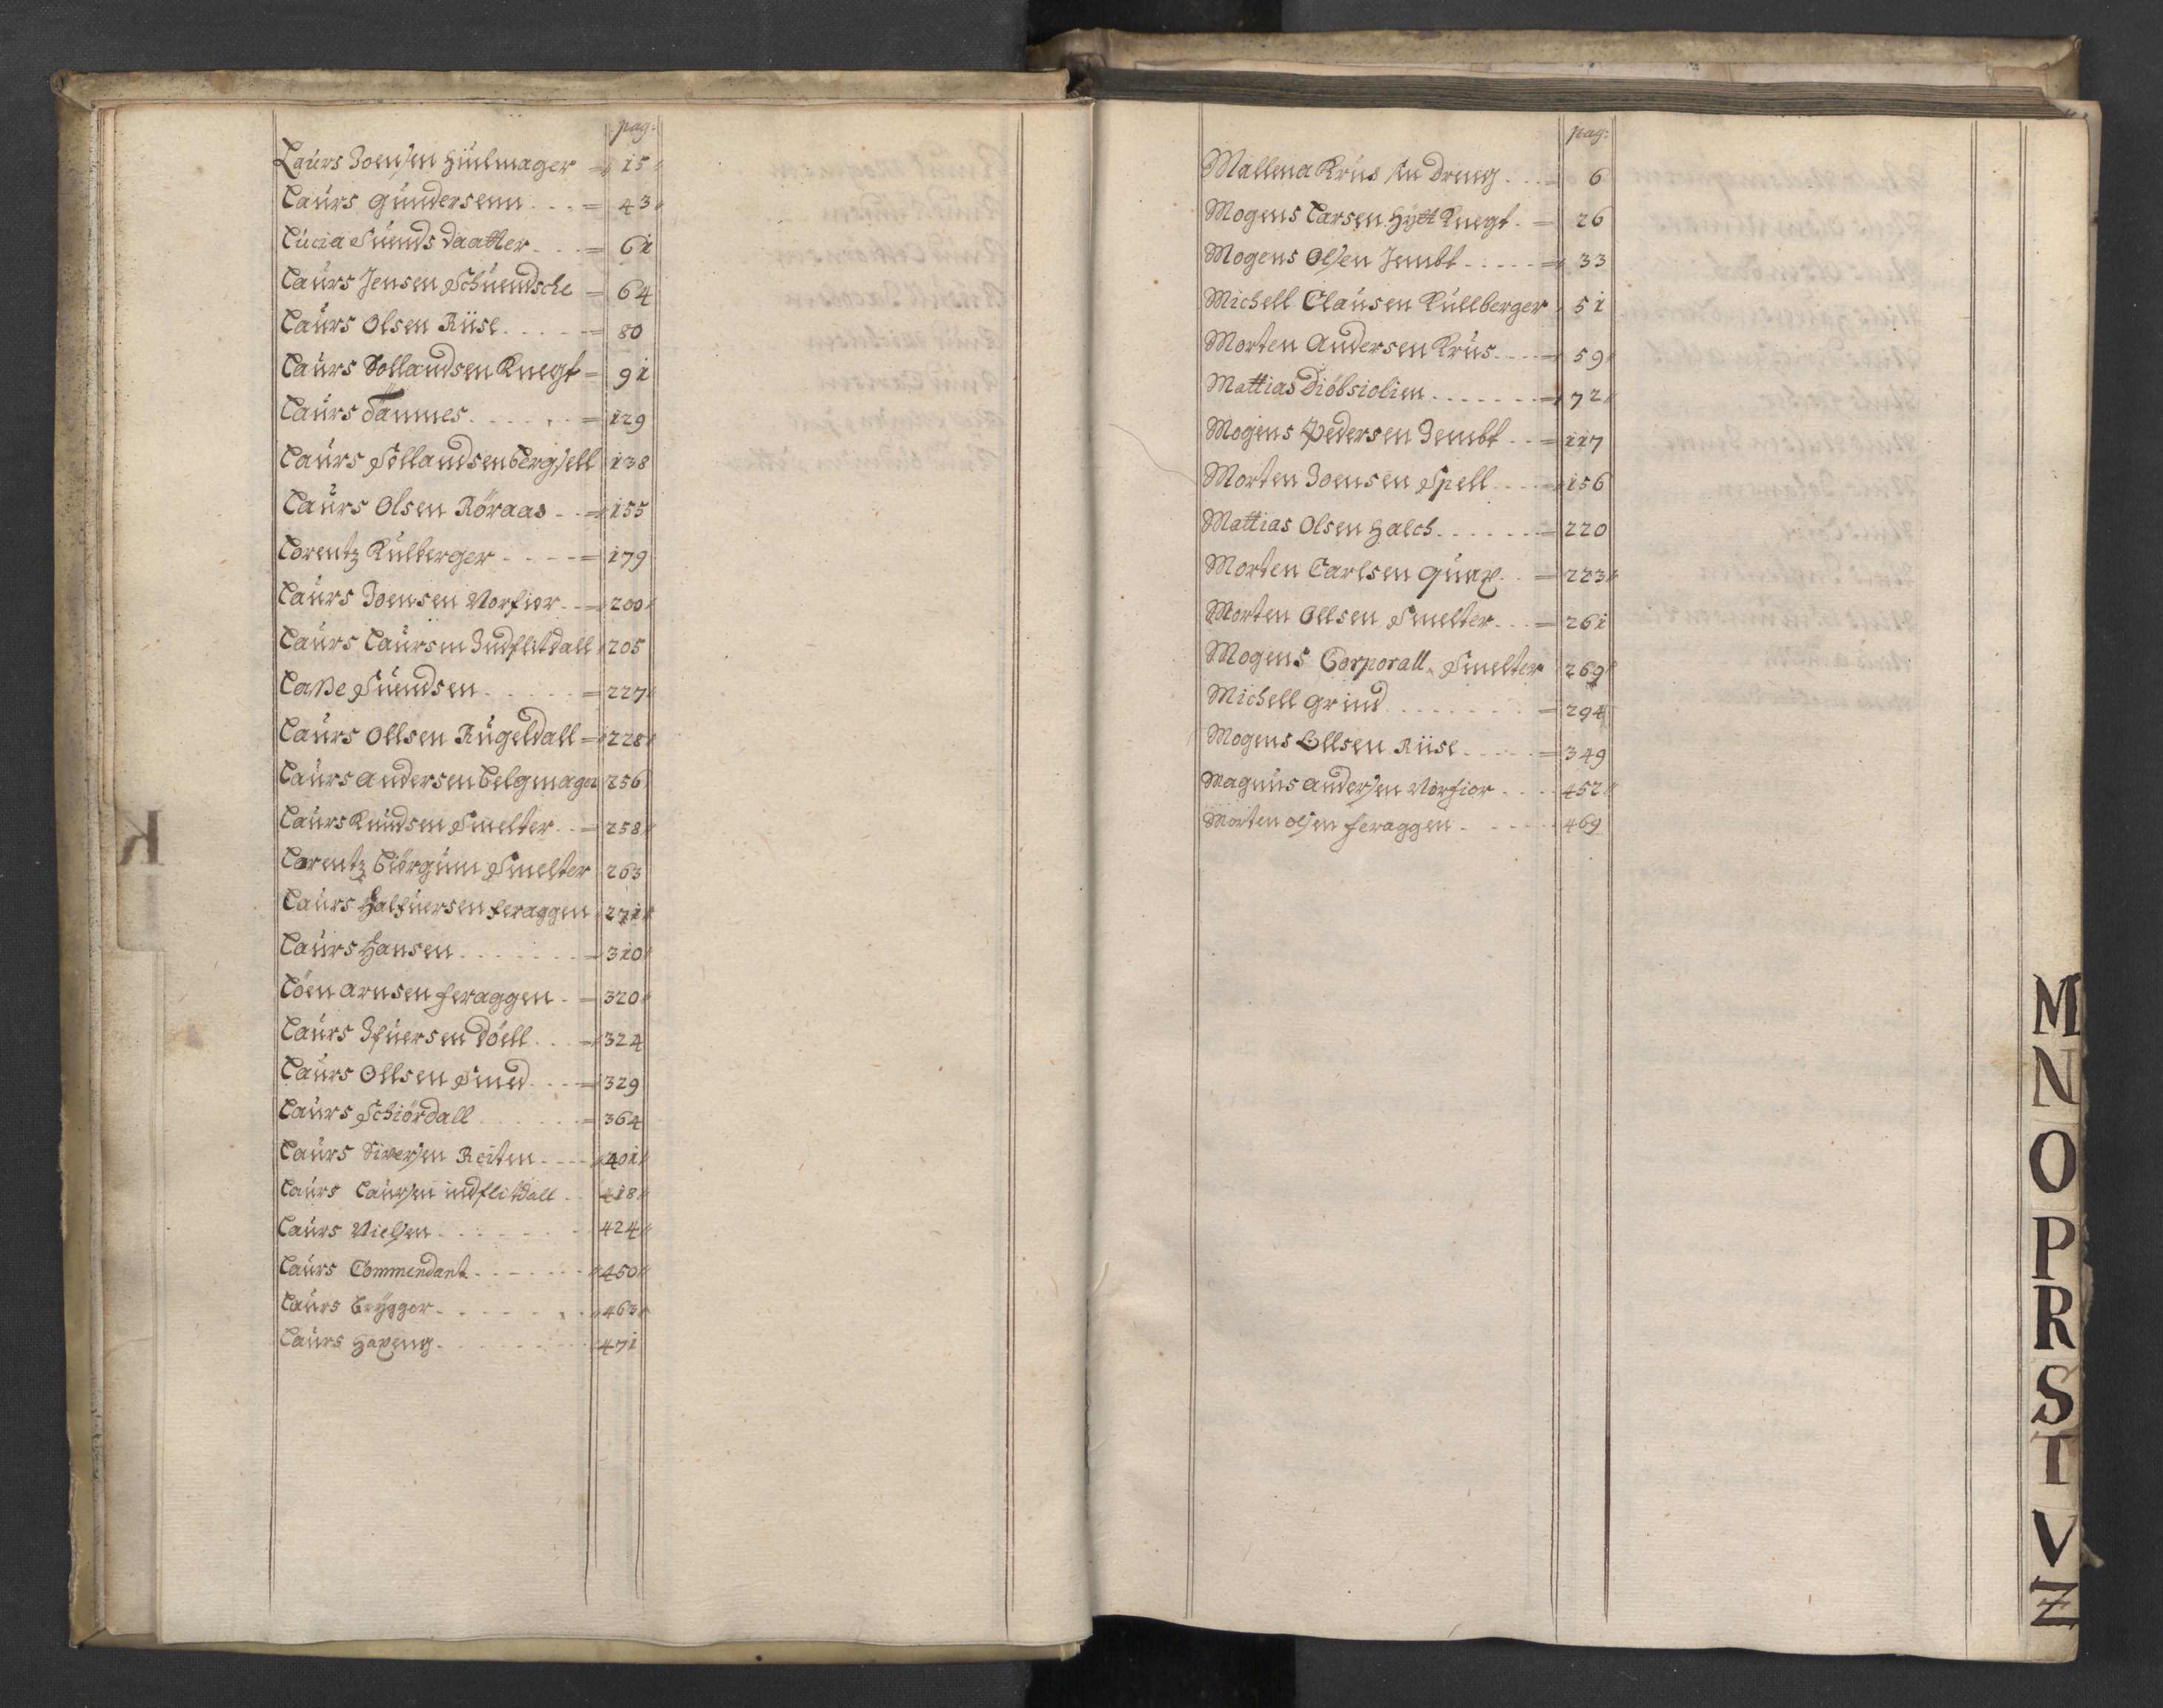 pag:
Laurs Joensen Hiulmager 15
Laurs Gundersenn 43
Lucia Suends daatter 61
Laurs Jensen Schuendsche 64
Laurs Olsen Riise 80
Laurs Sollandsen Knegt 91
Laurs Tännes 129
Laurs Sollandsen bergsell 138
Laurs Olsen Röraas 155
Lorentz Kulberger 179
Laurs Joensen Norfior 200
Laurs Laursen Indflitdall 205
Lasse Suendsen 227
Laurs Ollsen Rugeldall 228
Laurs Andersen belgmager 256
Laurs Knudsen Smelter 258
Lorentz Giörgum Smelter 263
Laurs Halfuersen feraggen 271
Laurs Hansen 310
Löen Arnsen feraggen 320
Laurs Ifuersen döell 324
Laurs Ollsen Smed 329
Laurs Schiördall 364
Laurs Siversen Reiten 401
Laurs Laursen indflitdall 418
Laurs Nielsen 424
Laurs Commendant 450
Laurs brygger 463
Laurs Haveng 471
K
pag:
Mallena Krus 6
Mogens Larsen Hytt Knegt 26
Mogens Olsen Jembt 33
Michell Clausen Kullberger 51
Morten Andersen Krus 59
Mattias Diöbsiolien 72
Mogens Pedersen Jembt 117
Morten Joensen Spell 156
Mattias Olsen Halch 220
Morten Carlsen 223
Morten Ollsen Smelter 261
Mogens Corporall Smelter 269
Michell Grind 294
Mogens Ollsen Riise 349
Magnus Andersen Norfior 452
Morten olsen feraggen 469
M
N
O
P
R
S
T
V
Z